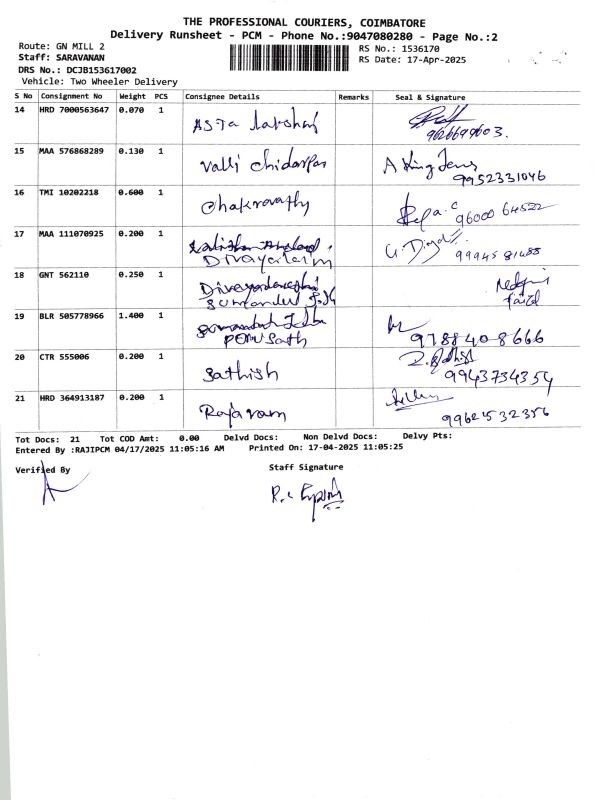 THE PROFESSIONAL COURIERS, COIMBATORE
Delivery Runsheet - PCM - Phone No.:9047080280 - Page No.:2
Route: GN MILL 2
RS No.: 1536170
Staff: SARAVANAN
RS Date: 17-Apr-2025
DRS No.: DCJB153617002
Vehicle: Two Wheeler Delivery
S No Consignment No Weight PCS Consignee Details Remarks Seal & Signature
14 HRD 7000563647 0.070 1
15 MAA 576868289 0.130 1 Valli Chidarpar A King Jens
9952331046
16 TMI 10202218 0.600 1 Chakravathy 96000 64522
17 MAA 111070925 0.200 1 99945 81488
18 GNT 562110 0.250 1
19 BLR 505778966 1.400 1 9788408666
20 CTR 555006 0.200 1 Sathish
9943734354
21 HRD 364913187 0.200 1 Rajaram 9962532356
Tot Docs: 21 Tot COD Amt: 0.00 Delvd Docs: Non Delvd Docs: Delvy Pts:
Entered By :RAJIPCM 04/17/2025 11:05:16 AM Printed On: 17-04-2025 11:05:25
Verified By
Staff Signature